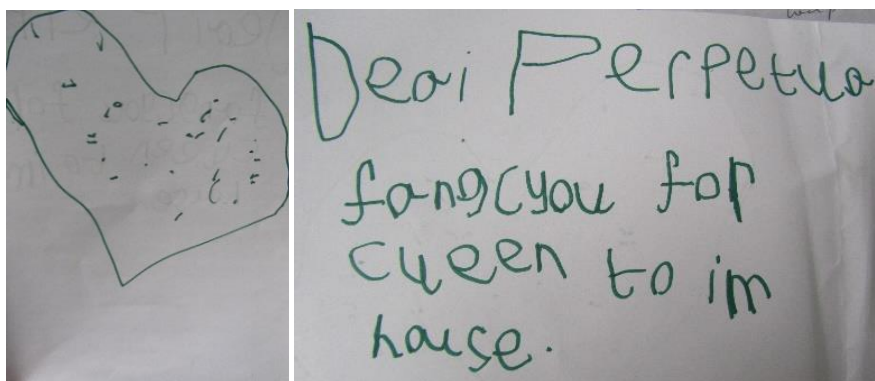 Deai Perpetua
fangcyou for
cyeen to im
hause.